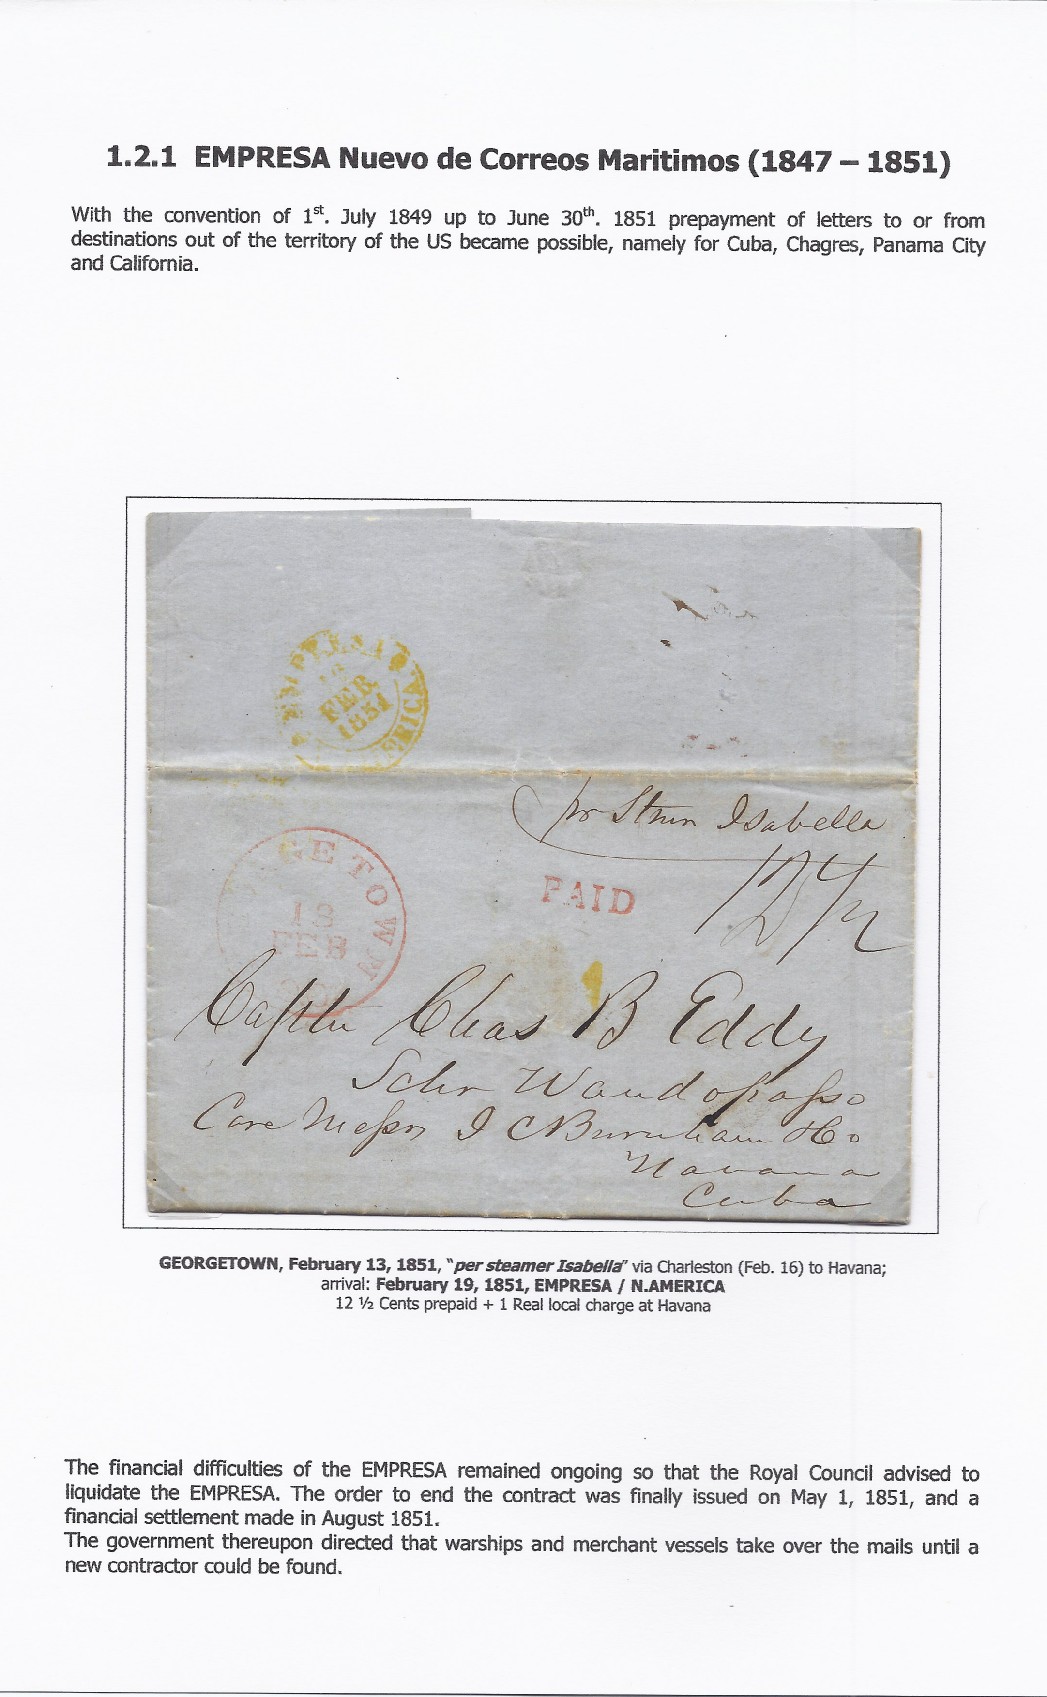 1.2.1 EMPRESA Nuevo de Correos Maritimos (1847 – 1851)
With the convention of 1st. July 1849 up to June 30th. 1851 prepayment of letters to or from
destinations out of the territory of the US became possible, namely for Cuba, Chagres, Panama City
and California.
EMPRESA
FEB
1851
ERICA
pr Stmr Isabella
12 1/2
PAID
GETOWN
13
FEB
Captn Chas B Eddy
Schr
Care Messrs J C Burnham & Co
Havana
Cuba
GEORGETOWN, February 13, 1851, "per steamer Isabella" via Charleston (Feb. 16) to Havana;
arrival: February 19, 1851, EMPRESA / N.AMERICA
12 ½ Cents prepaid + 1 Real local charge at Havana
The financial difficulties of the EMPRESA remained ongoing so that the Royal Council advised to
liquidate the EMPRESA. The order to end the contract was finally issued on May 1, 1851, and a
financial settlement made in August 1851.
The government thereupon directed that warships and merchant vessels take over the mails until a
new contractor could be found.